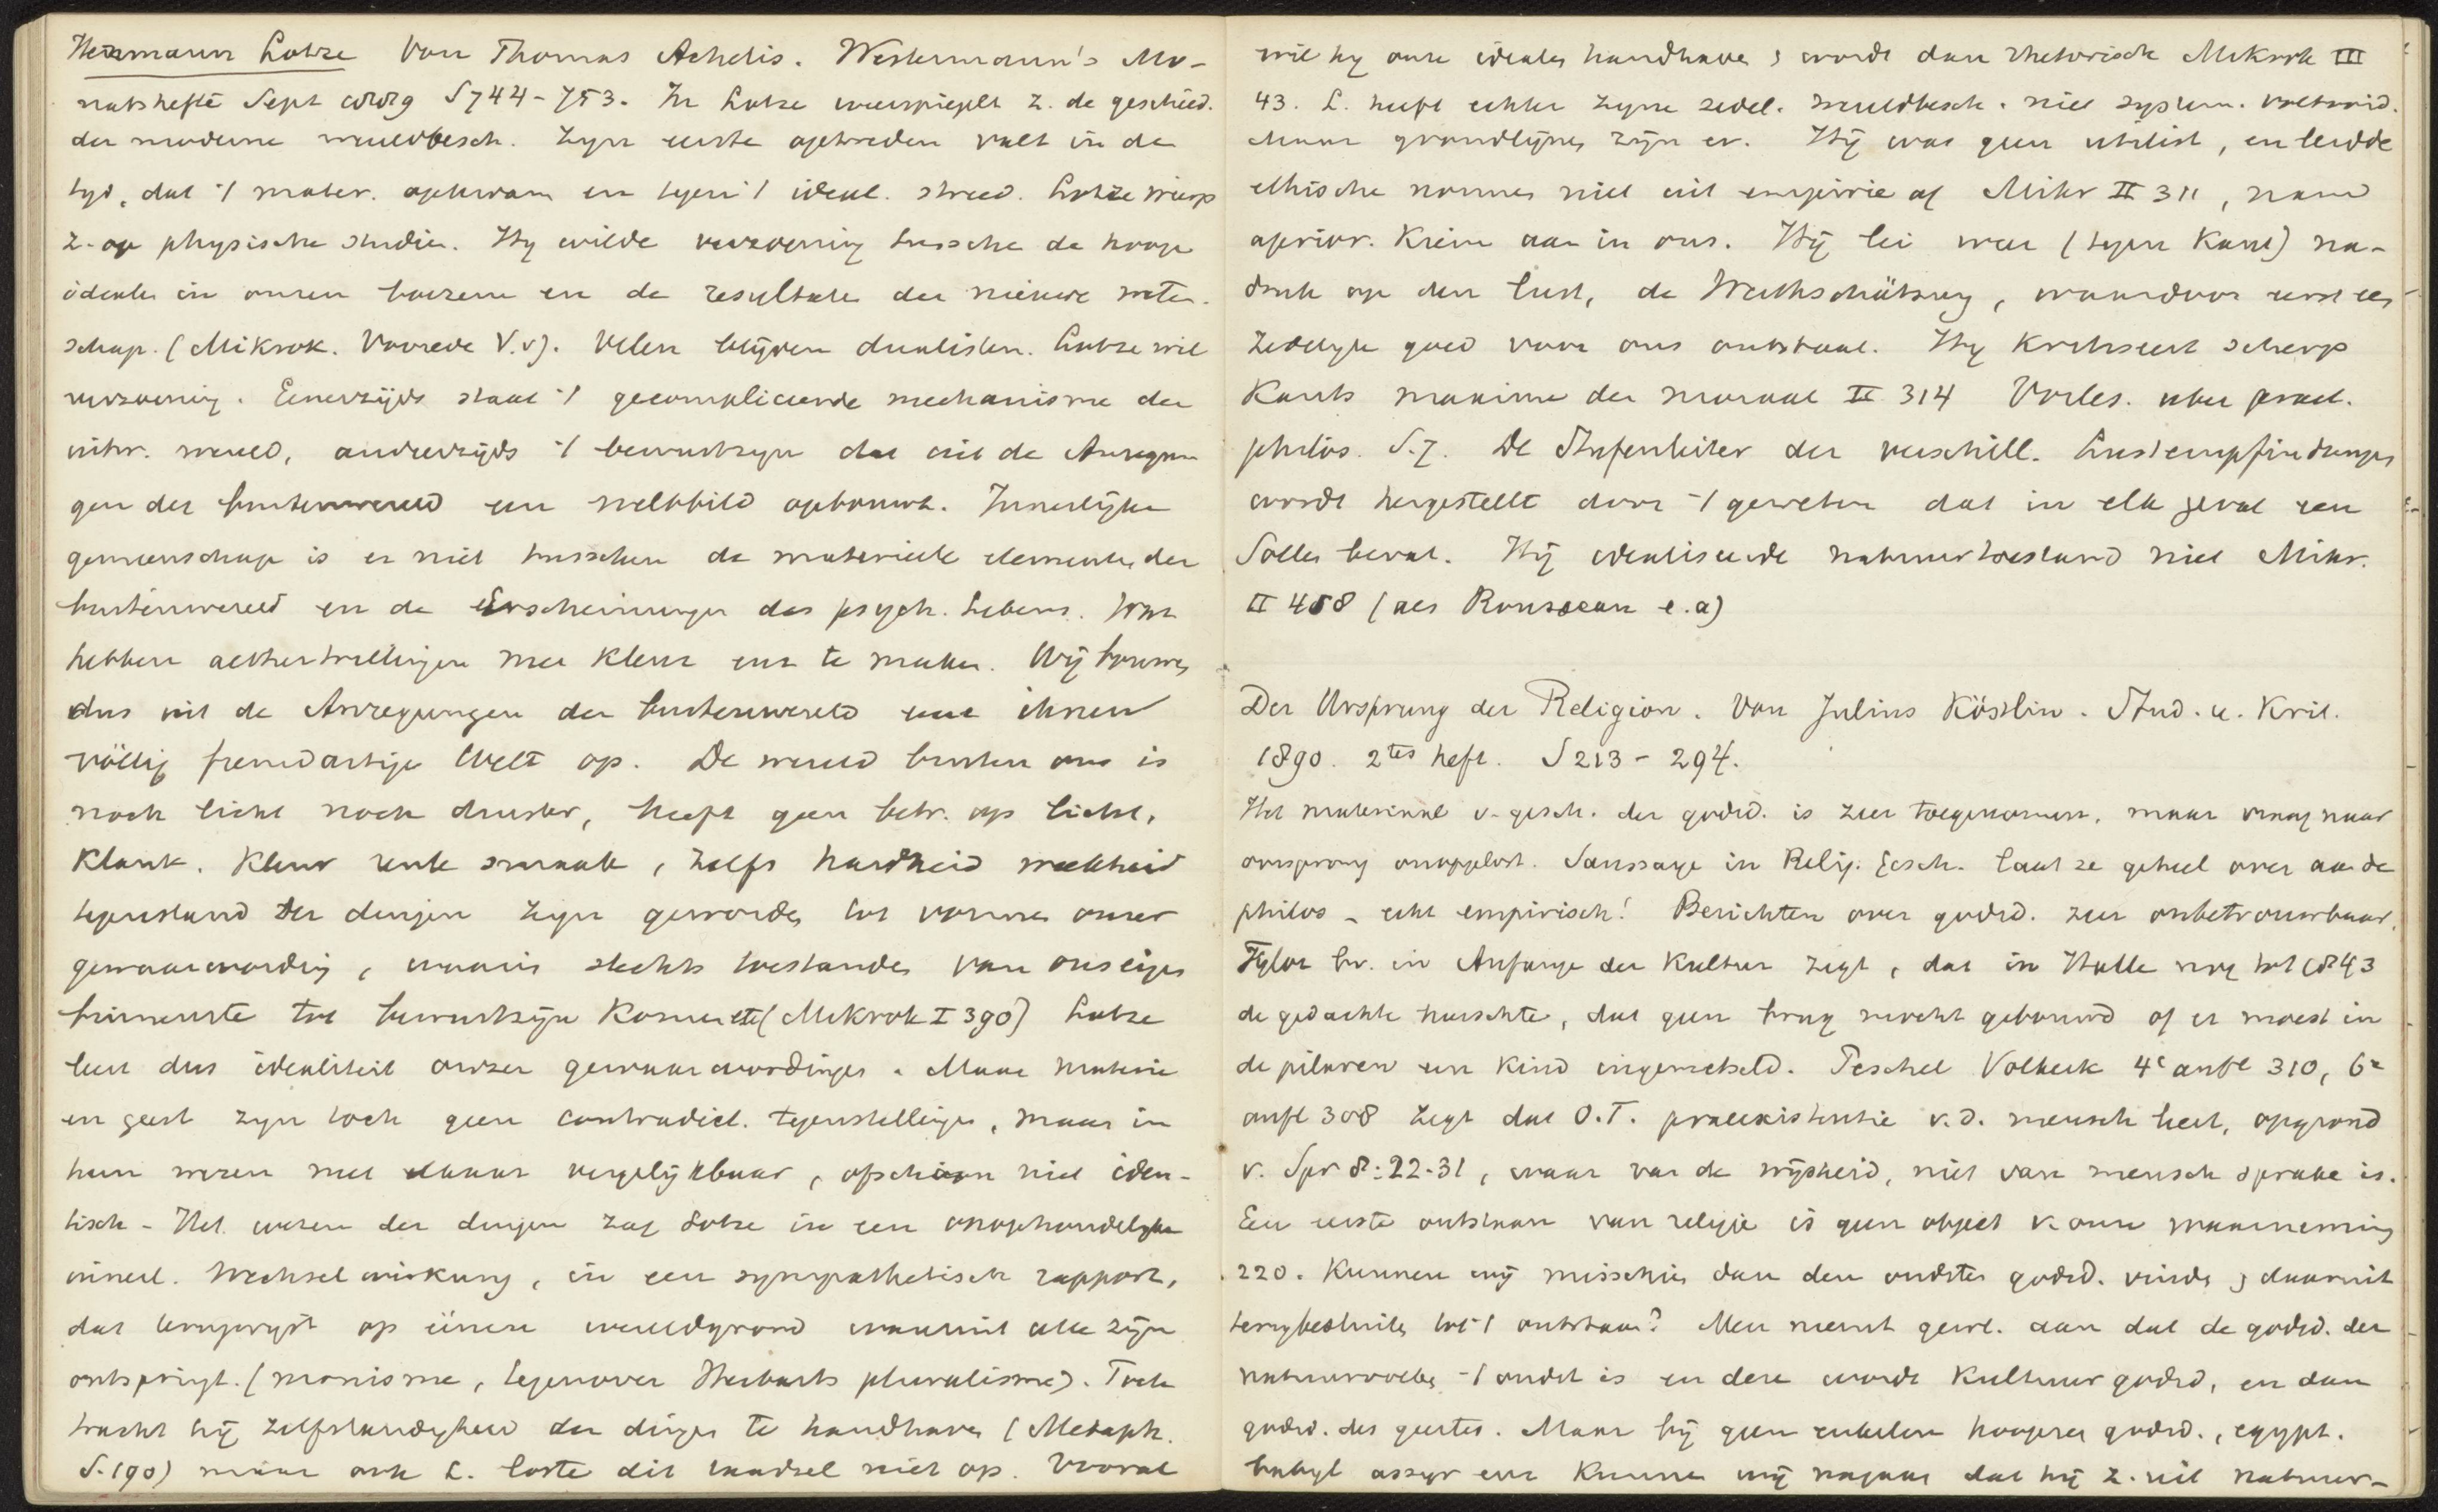 Hermann Lotze Von Thomas Achelis. Westermann's Mo-
natshefte Sept 1889 S 744-753. In Lotze weerspiegelt z. de geschied.
der moderne wereldbesch. Zyn eerste optreden valt in de
tyd, dat 't mater. opkwam en tegen 't ideal. streed. Lotze wierp
z. op physische studien. Hy wilde verzoening tussche de hooge
idealen in onzen boezem en de resultaten der nieuwe weten-
schap. (Mikrok. Voorrede V.v). Velen blijven dualisten. Lotze wil
verzoening. Eenerzijds staat 't gecompliceerde mechanisme der
uitw. wereld, anderzijds 't bewustzyn dat uit de Anregun
gen der buitenwereld een weltbild opbouwt. Innerlijke
gemeenschap is er niet tusschen de materieele elementen der
buitenwereld en de Erscheinungen des psych. Lebens. Wat
hebben aethertrillingen met kleur enz te maken. Wij bouwen
dus uit de Anregungen der buitenwereld eene ihnen
völlig fremdartige Welt op. De wereld buiten ons is
noch licht noch duister, heeft geen betr. op licht,
klank. Kleur reuk smaak, zelfs hardheid weekheid
tegenstand der dingen zyn geworden tot vormen onzer
gewaarwording, waarin slechts toestanden van ons eigen
binnenste tot bewustzijn komen etc (Mikrok I 390) Lotze
leert dus idealiteit onzer gewaarwordingen. Maar materie
en geest zyn toch geen contradict. tegenstellingen, maar in
hun wezen met elkaar vergelijkbaar, ofschoon niet iden-
tisch - Het wezen der dingen zag Lotze in een onophoudelyke
innerl. Wechselwirkung, in een sympathetisch rapport,
dat terugwyst op éénen wereldgrond waaruit alle zijn
ontspringt. (monisme, tegenover Herbarts pluralisme). Toch
tracht hij zelfstandigheid der dingen te handhaven (Metaph.
S. 190) maar ook L. loste dit raadsel niet op. Vooral
wil hy onze idealen handhaven & wordt dan rhetorisch Mikrok III
43. L. heeft echter zyne zedel. wereldbesch. niet system. voltooid.
Maar grondlijnen zijn er. Hij was geen utilist, en leidde
ethische normen niet uit empirie af Mikr II 311, nam
aprior. Keime aan in ons. Hij lei weer (tegen Kant) na-
druk op den lust, de Werthschätzung, waardoor eerst een
zedelyk goed voor ons ontstaat. Hy kritiseert scherp
Kants maxime der moraal II 314 Vorles. uber pract.
philos. S. 7. De Stufenleiter der verschill. Lustempfindungen
wordt hergestellt door 't geweten dat in elk geval een
Sollen bevat. Hij idealiseerde natuurtoestand niet Mikr.
II 458 (als Rousseau e.a)
Der Ursprung der Religion. Von Julius Köstlin. Stud. u. Krit.
1890. 2tes heft. S 213 - 294.
Het materiaal v. gesch. der godsd. is zeer toegenomen, maar vraag naar
oorsprong onopgelost. Saussaye in Relig. Gesch. laat ze geheel over aan de
philos - echt empirisch! Berichten over godsd. zeer onbetrouwbaar.
Tylor bv. in Anfange der Kultur zegt, dat in Halle nog tot 1843
de gedachte heerschte, dat geen brug werdt gebouwd of er moest in
de pilaren een kind ingemetseld. Peschel Volkerk 4e aufl 310, 6e
aufl 308 zegt dat O.T. praeexistentie v.d. mensch leert, op grond
v. Spr 8:22-31, waar van de wijsheid, niet van mensch sprake is.
Een eerste ontstaan van religie is geen object v. onze waarneming
220. Kunnen wij misschien dan den oudsten godsd. vinden & daaruit
terugbesluiten tot 't ontstaan? Men neemt gewl. aan dat de godsd. der
natuurvolken 't oudst is en deze wordt Kultuurgodsd, en dan
godsd. des geestes. Maar bij geen enkelen hoogeren godsd., egypt.
babyl assyr enz kunnen wij nagaan dat hij z. uit natuur-